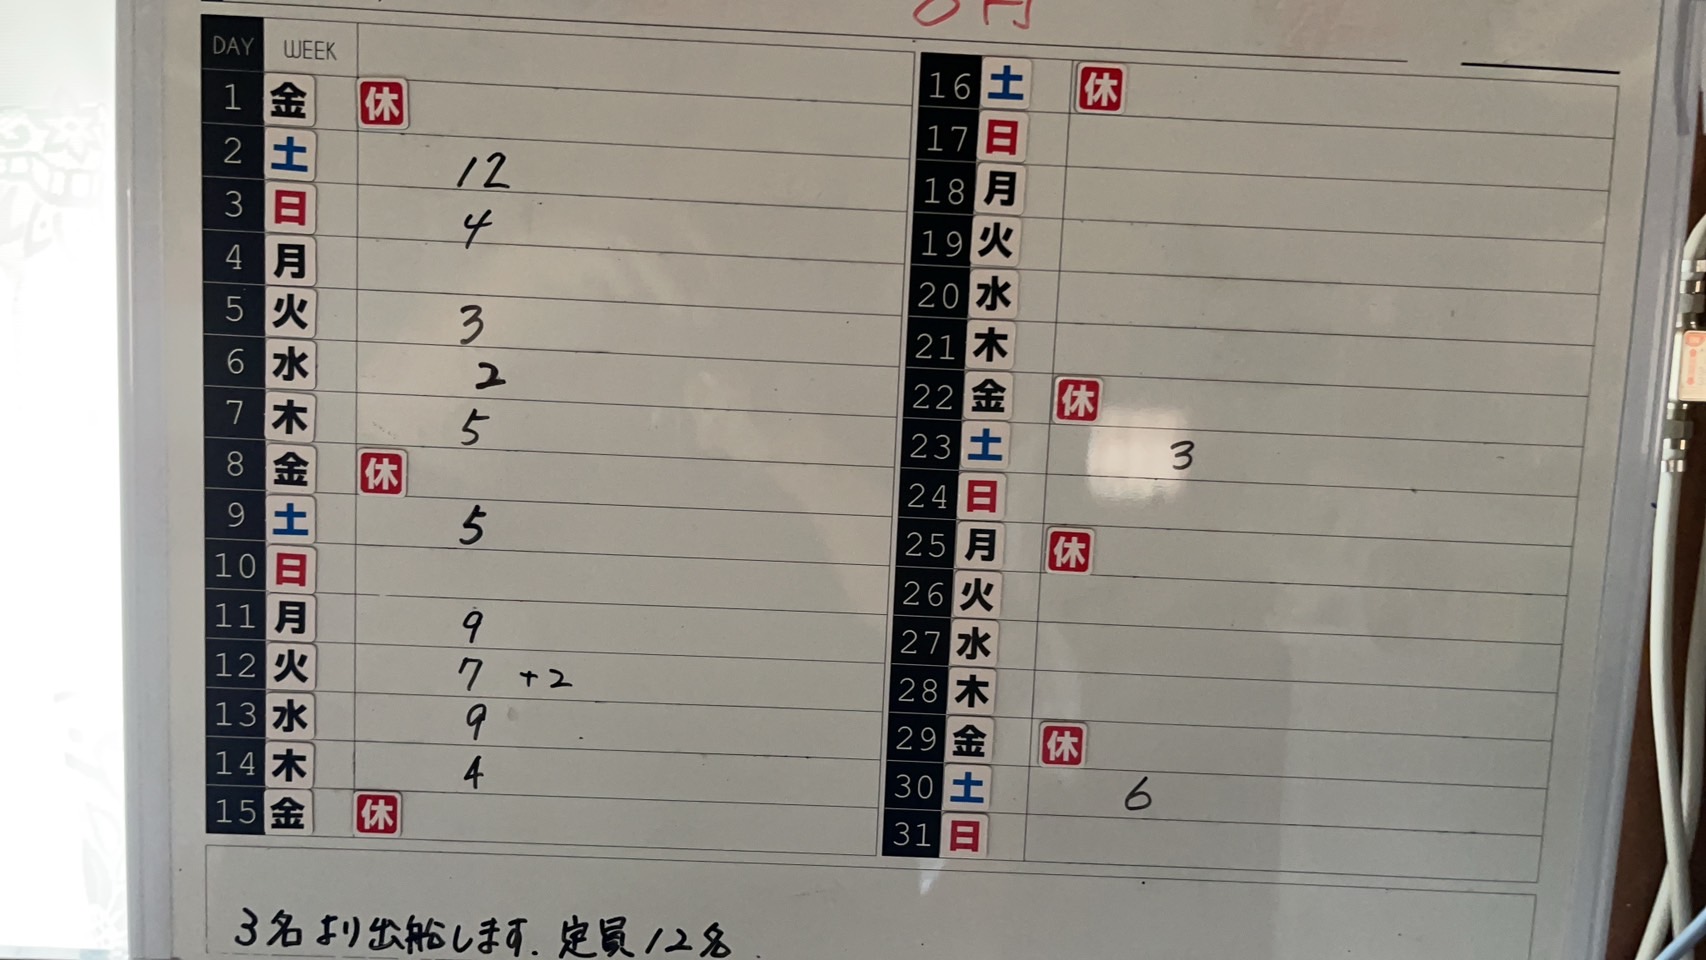 8月
DAY WEEK
1 金 休
2 土 12
3 日 4
4 月
5 火 3
6 水 2
7 木 5
8 金 休
9 土 5
10 日
11 月 9
12 火 7 +2
13 水 9
14 木 4
15 金 休
16 土 休
17 日
18 月
19 火
20 水
21 木
22 金 休
23 土 3
24 日
25 月 休
26 火
27 水
28 木
29 金 休
30 土 6
31 日
3名より出船します. 定員12名